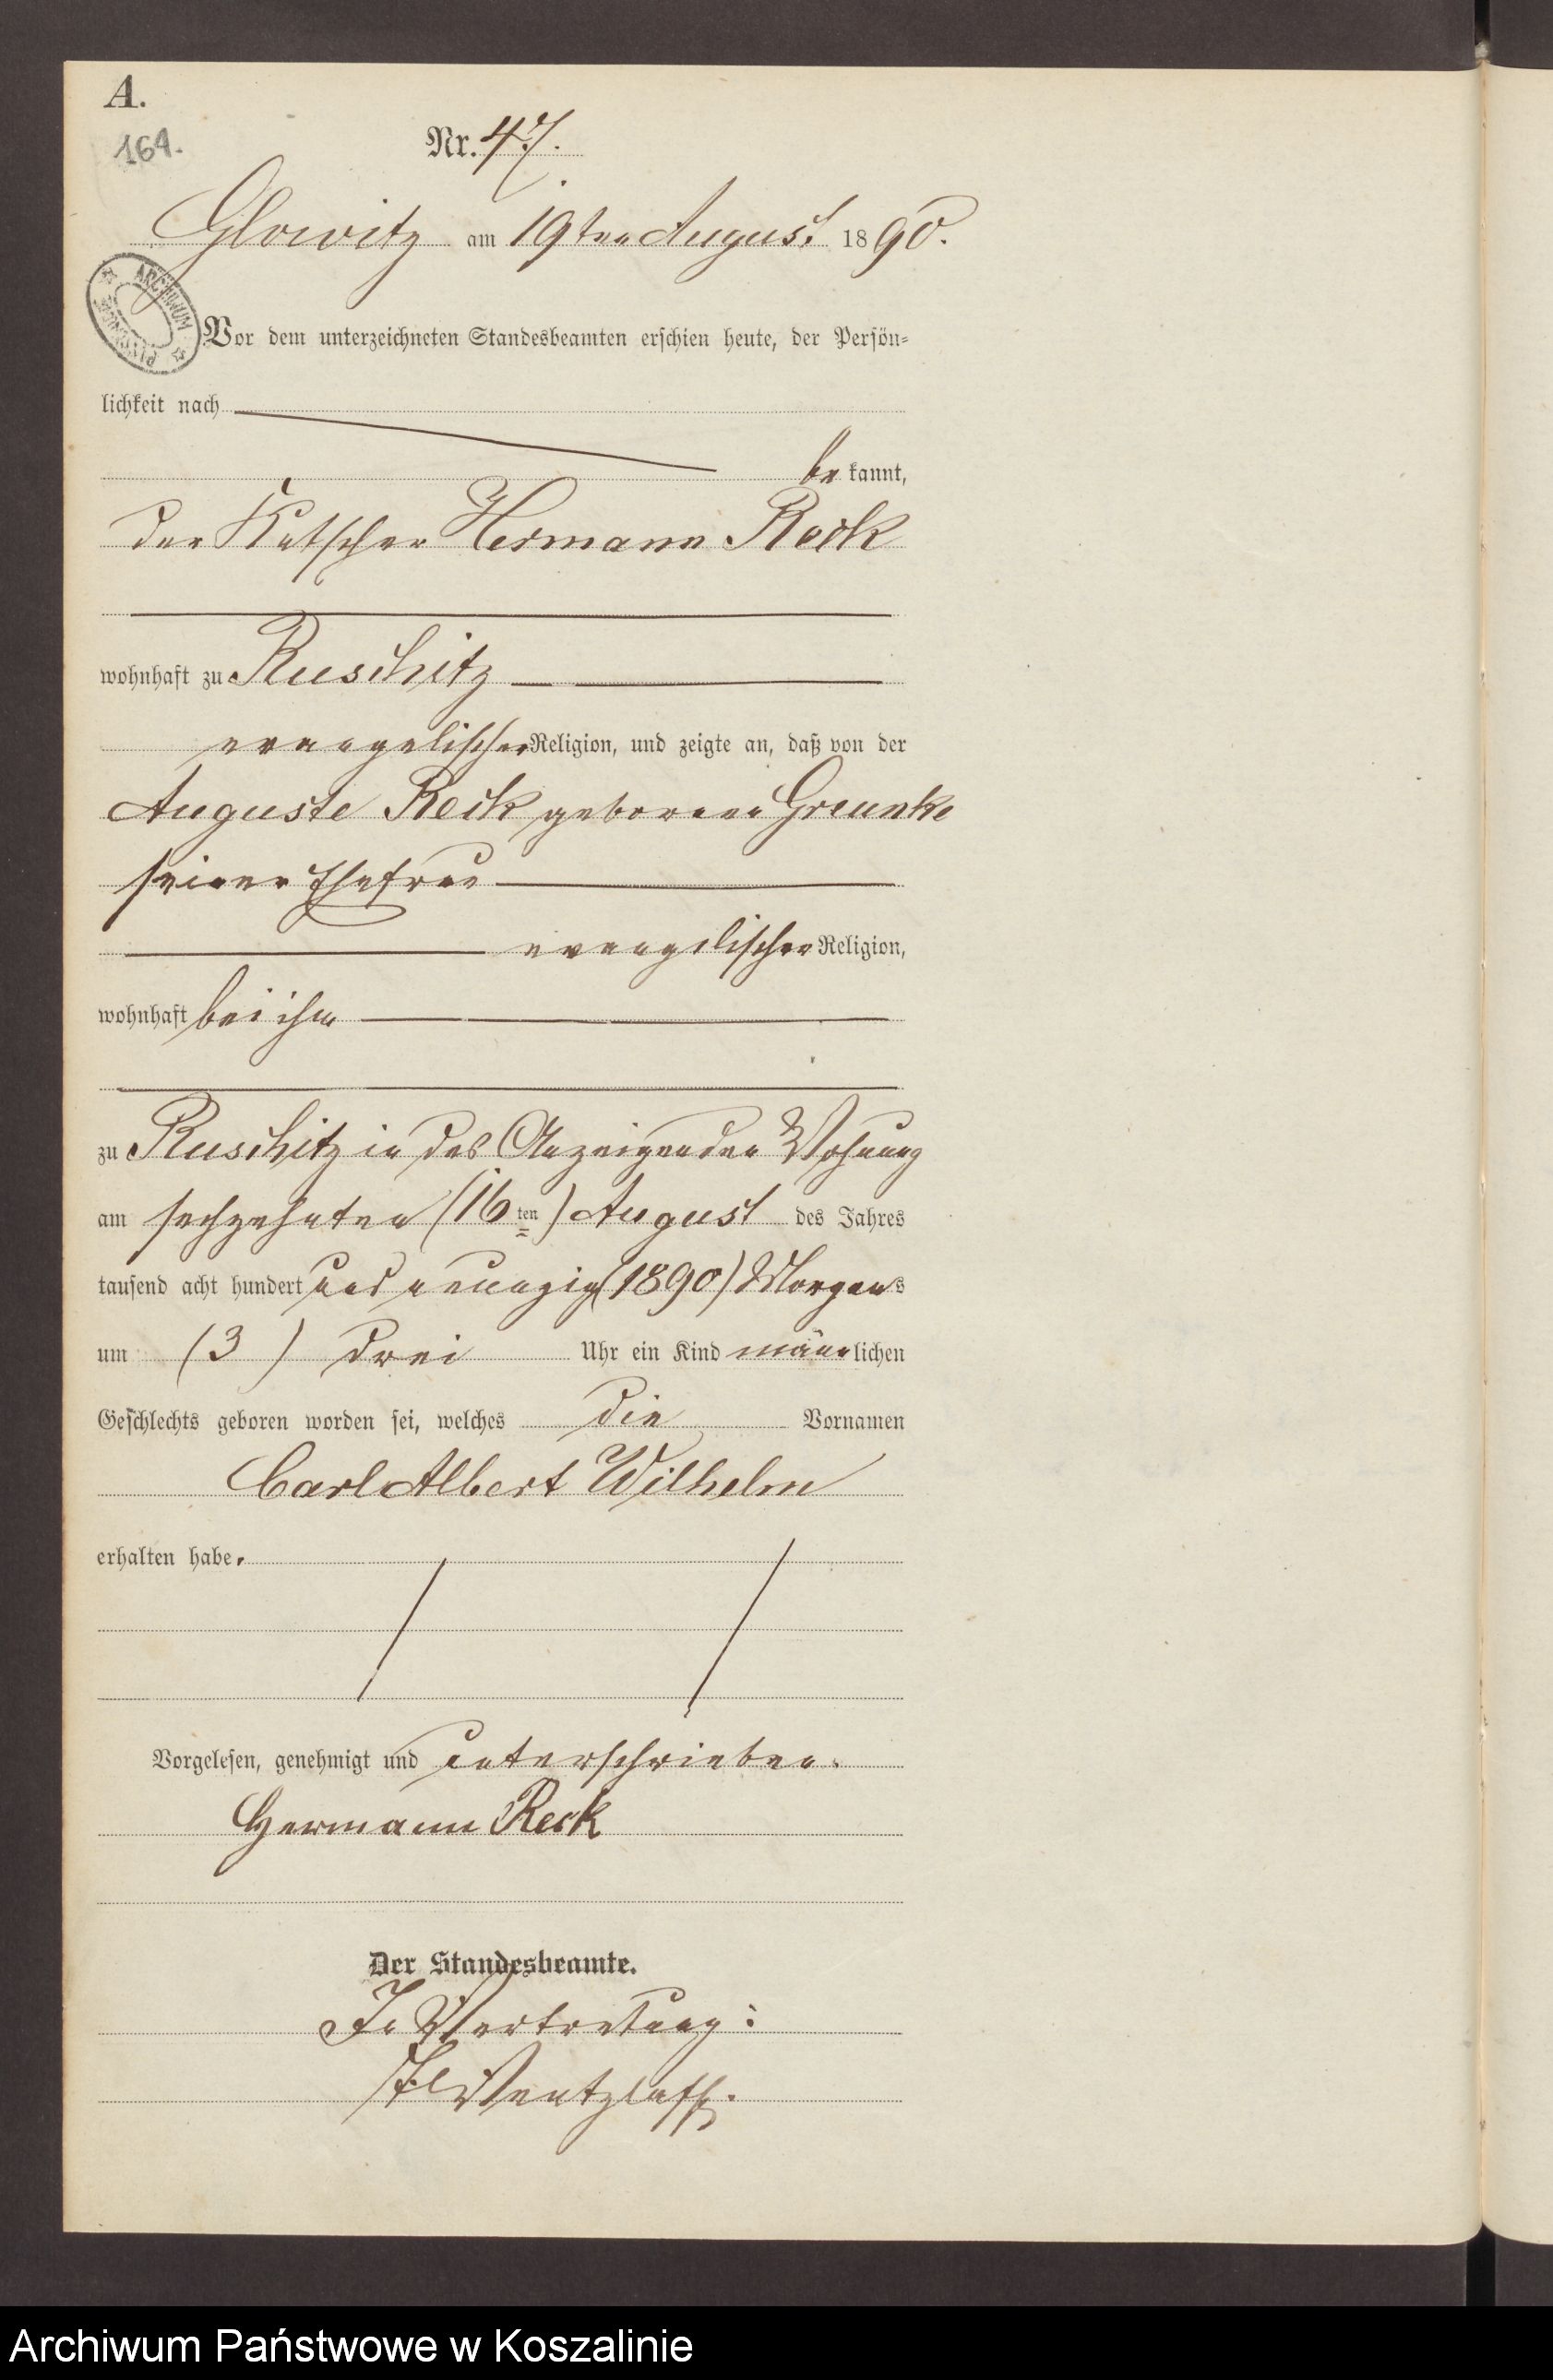 A.
164.
Nr. 47.
Glowitz am 19ten August 1890.
ARCHIWUM
Vor dem unterzeichneten Standesbeamten erschien heute, der Persön-
lichkeit nach
be kannt,
der Kutscher Hermann Reck
wohnhaft zu Ruschitz
evangelischer Religion, und zeigte an, daß von der
Auguste Reck geborene Greunke
seiner Ehefrau
evangelischer Religion,
wohnhaft bei ihm
zu Ruschitz in des Anzeigenden Wohnung
am sechzehnten (16ten) August des Jahres
tausend acht hundert und neunzig (1890) Morgens
um (3) drei Uhr ein Kind männlichen
Geschlechts geboren worden sei, welches die Vornamen
Carl Albert Wilhelm
erhalten habe.
Vorgelesen, genehmigt und unterschrieben.
Hermann Reck
Der Standesbeamte.
In Vertretung:
Wentzlaff.
Archiwum Państwowe w Koszalinie